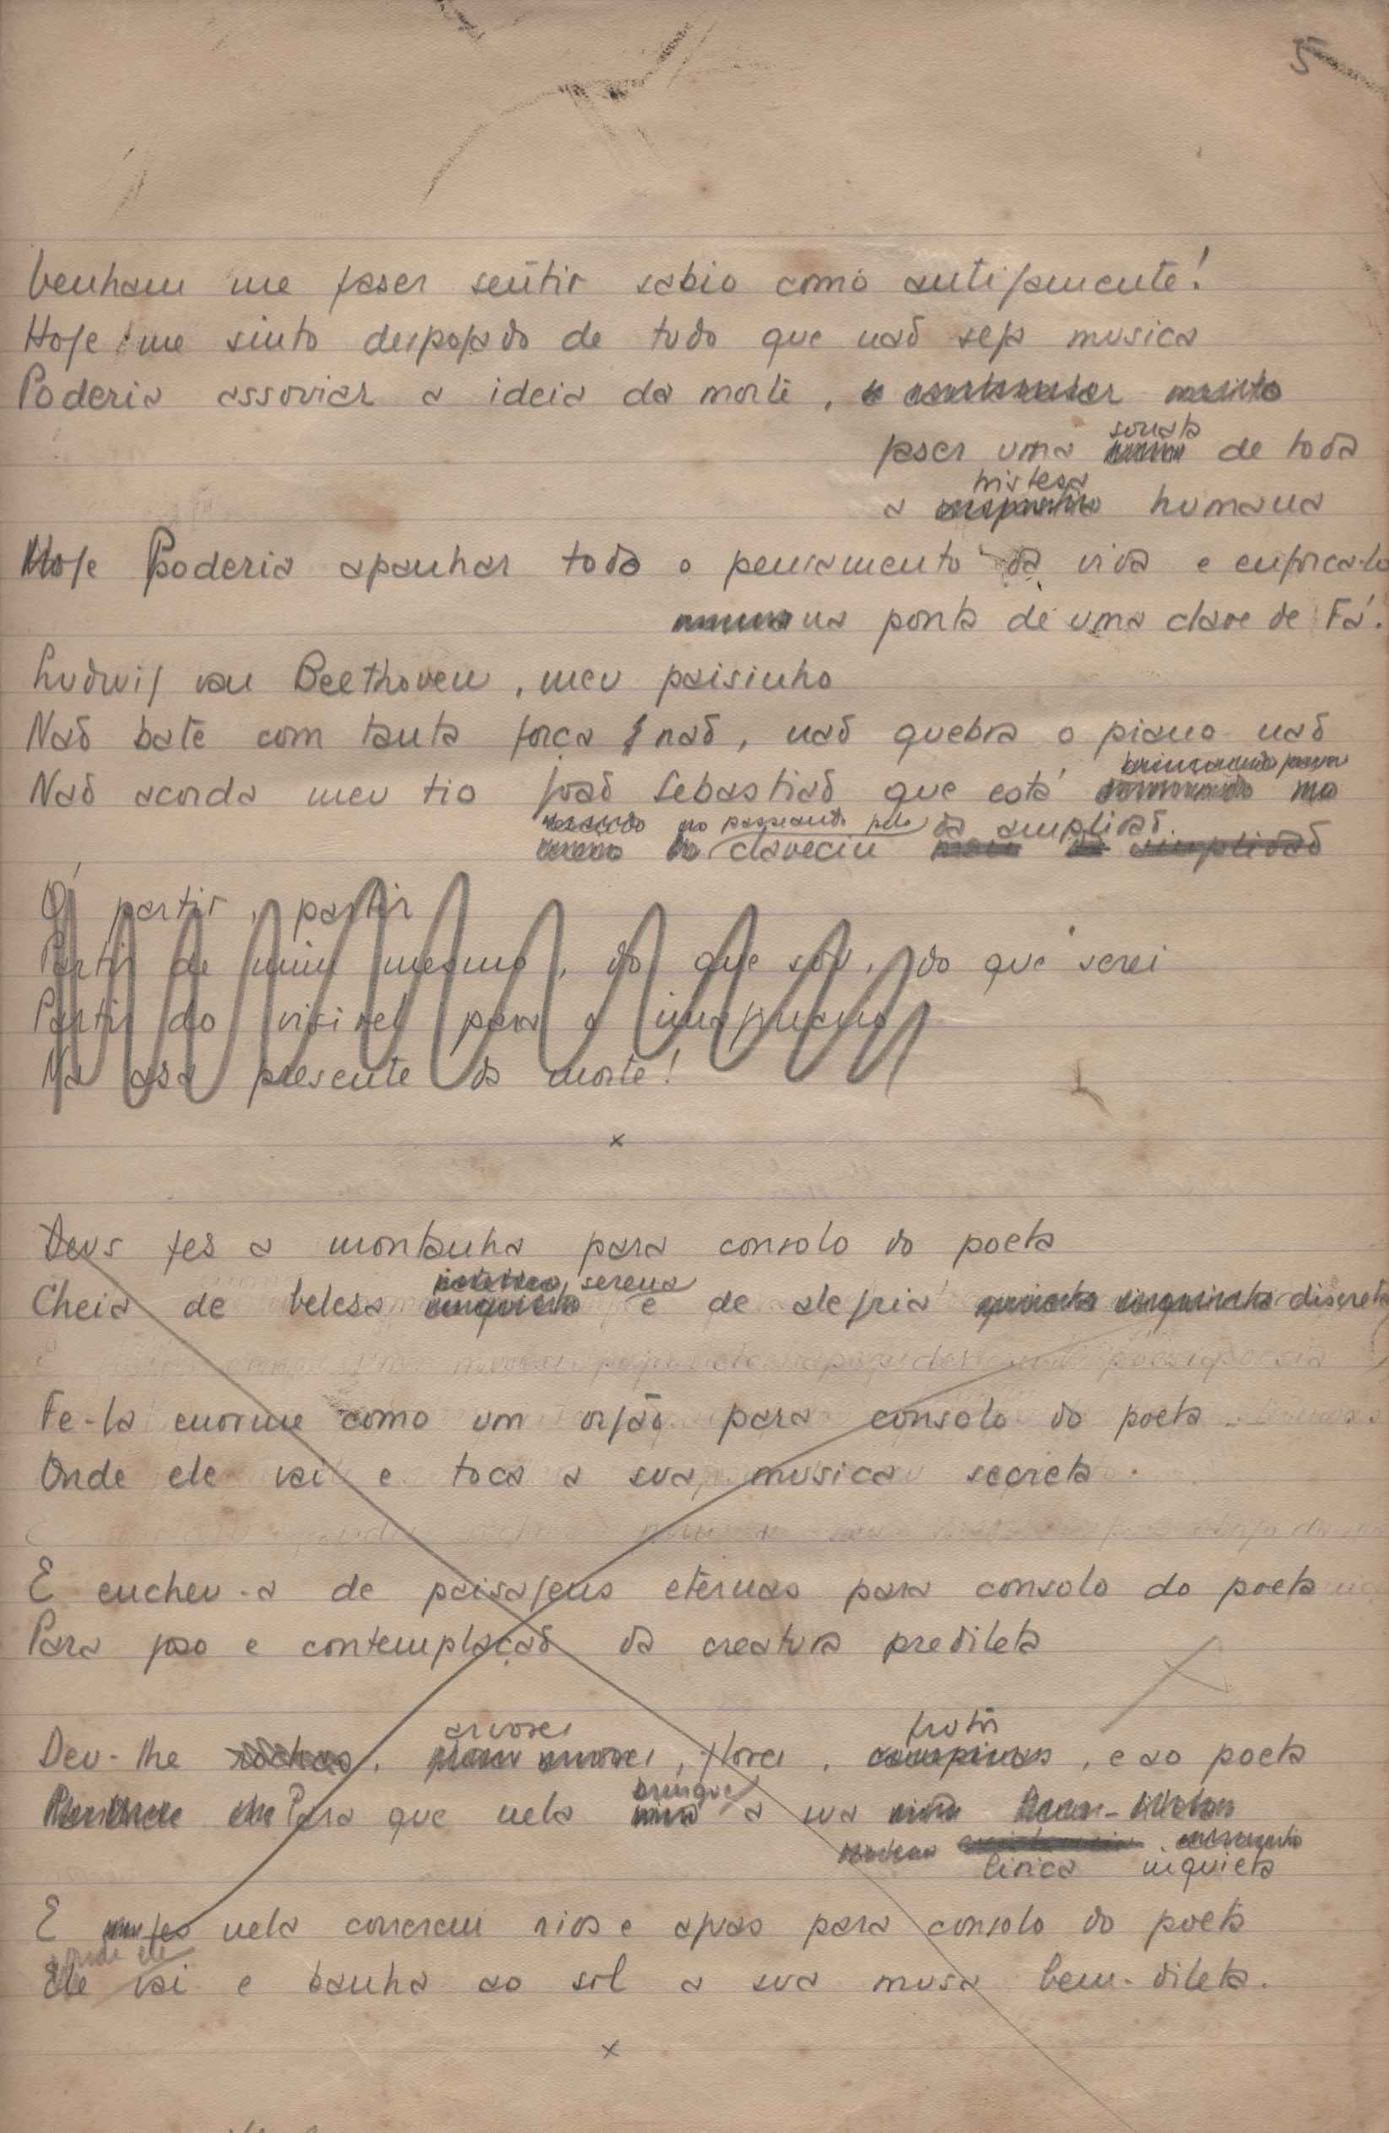 5
Venham me faser sentir sabio como antigamente!
Hoje me sinto despojado de tudo que não seja musica
Poderia assoviar a ideia da morte,
faser uma sonata de toda
a tristesa humana
Hoje Poderia apanhar todo o pensamento da vida e enforca-lo
na ponta de uma clave de Fá.
Ludwig van Beethoven, meu paisinho
Não bate com tanta força não, não quebra o piano não
Não acorda meu tio João Sebastião que está
passeando pelo da amplidão.
clavecin amplidão
Ó partir, partir
Partir de mim mesmo, do que sou, do que serei
Partir do visivel para o
Na asa presente da morte!
x
Deus fes a montanha para consolo do poeta
serena
Cheia de belesa e de alegria discreta
Fe-la enorme como um orgão para consolo do poeta
Onde ele vai e toca a sua musica secreta.
E encheu-a de paisagens eternas para consolo do poeta
Para goso e contemplação da creatura predileta
arvores frutos
Deu-lhe rochas, flores, e ao poeta
brinque
Para que nela a sua
lirica inquieta
E fes nela correrem rios e aguas para consolo do poeta
onde ele
Ele vai e banha ao sol a sua musa bem-dileta.
x